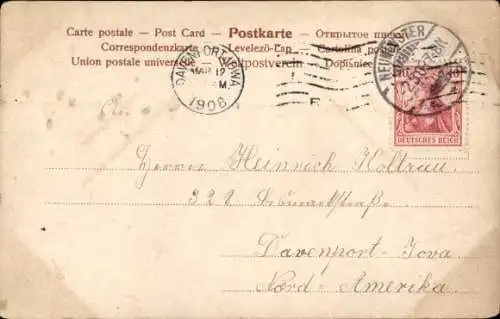 Carte postale – Post Card – Postkarte – Открытое письмо
Correspondenzkarte – Levelező-Lap – Cartolina postale
Union postale universelle Weltpostverein – Dopisnice
DAVENPORT, IOWA
MAR 12
M.
1906
DEUTSCHES REICH
10
An
Herrn Heinrich Koltzau.
322
Davenport-Iova
Nord-Amerika.